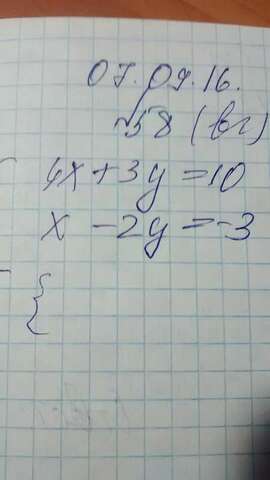 07.09.16.
№58 (вг)
4x+3y=10
x-2y=-3
{